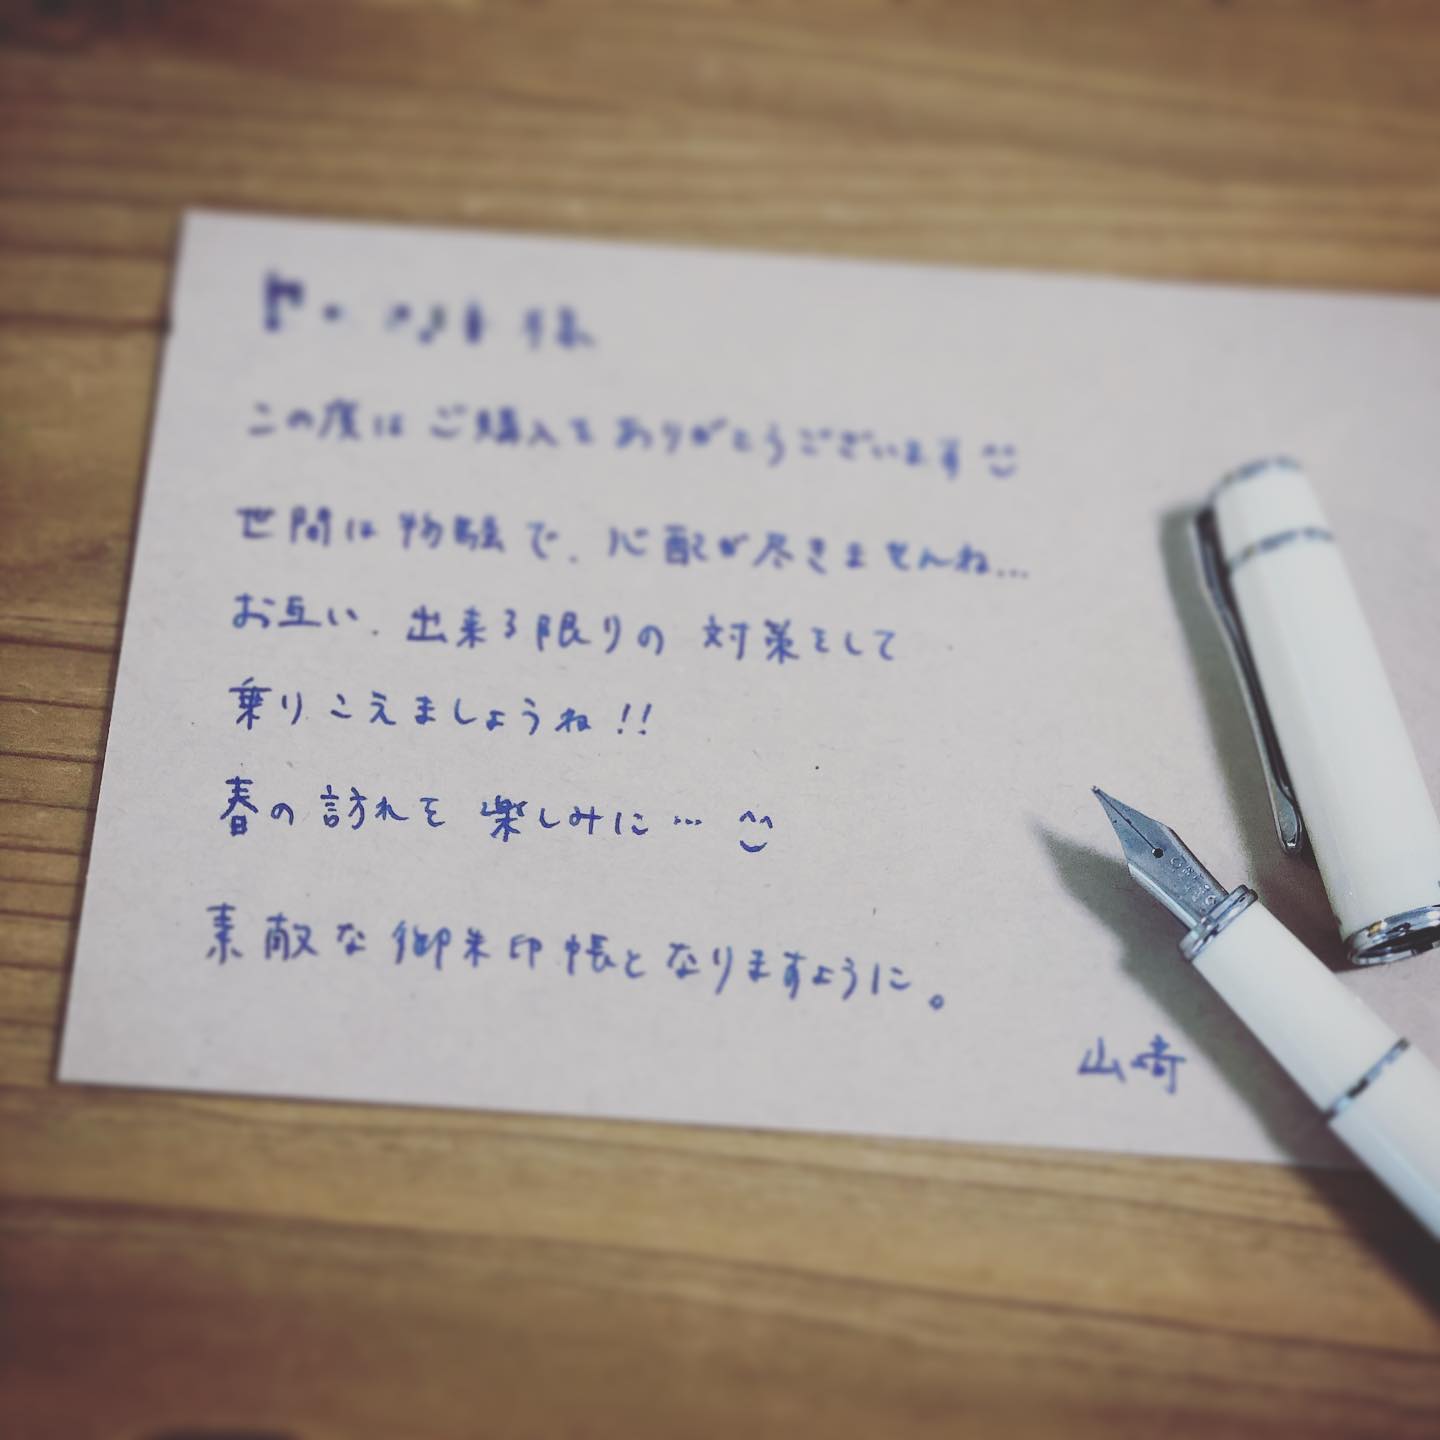 様
この度はご購入をありがとうございます
世間は物騒で、心配が尽きませんね…
お互い、出来る限りの対策をして
乗りこえましょうね!!
春の訪れを楽しみに… ^^
素敵な御朱印帳となりますように。
山崎